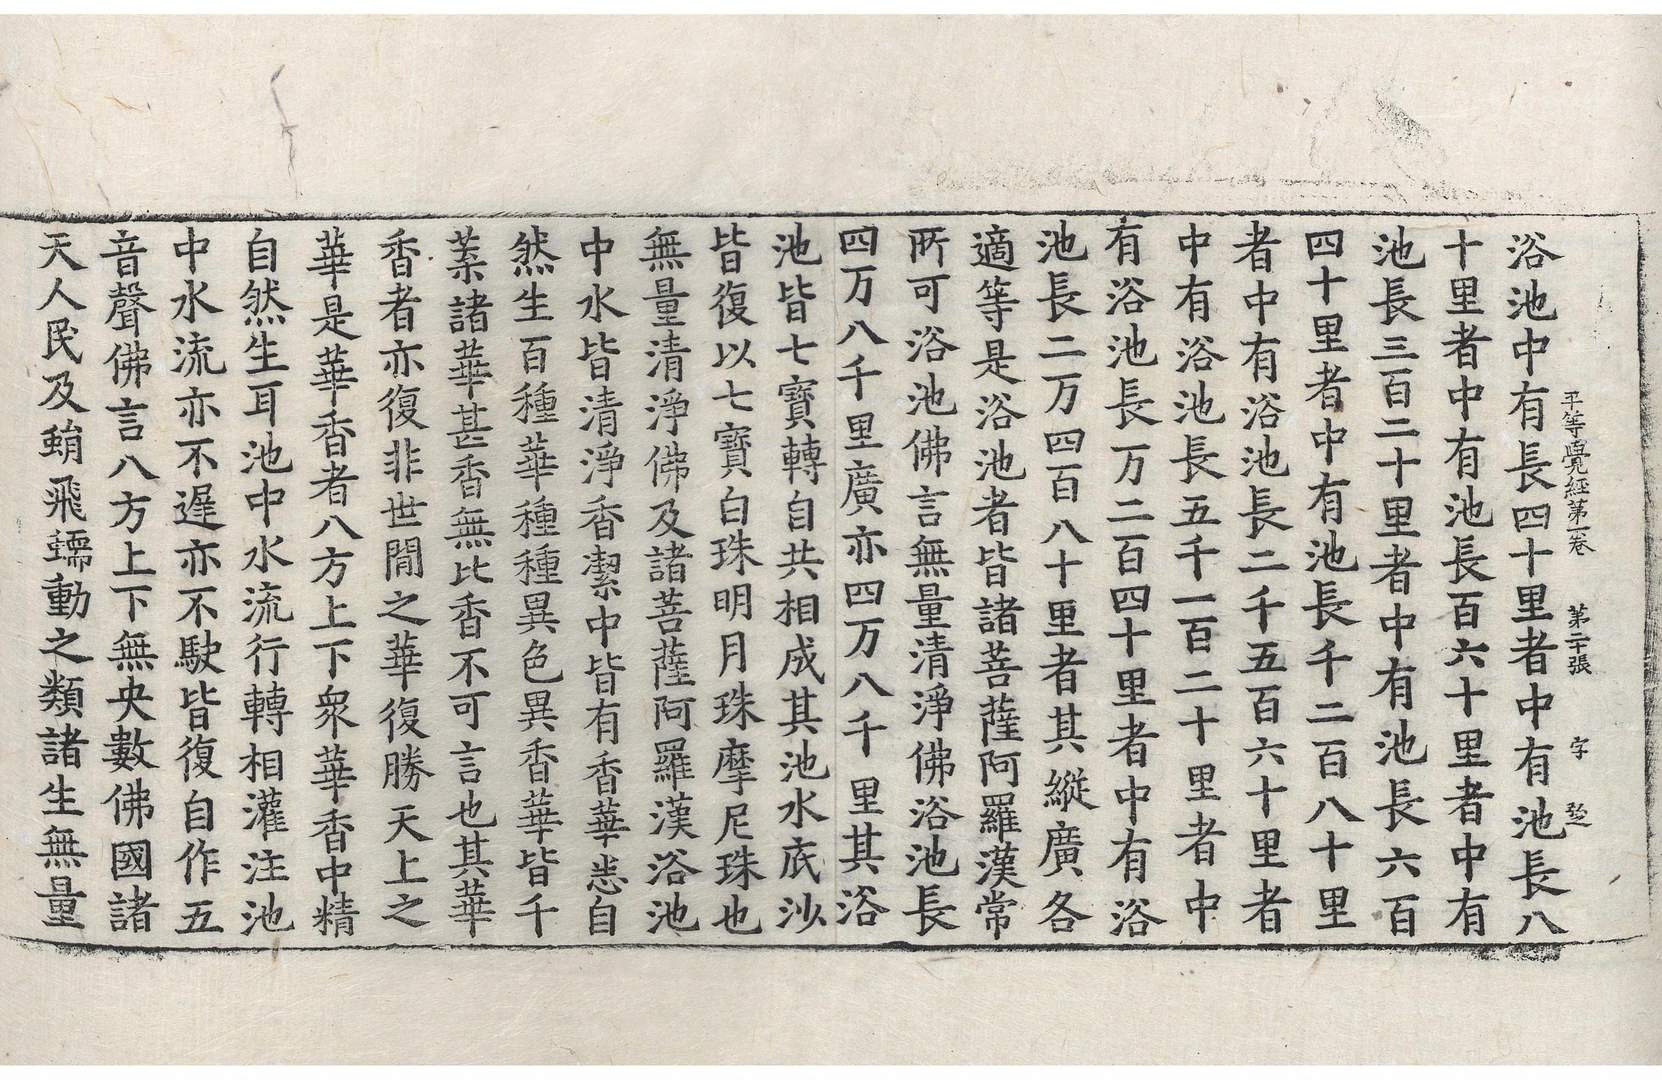 平等覺經第一卷　第二十張　字
浴池中有長四十里者中有池長八
十里者中有池長百六十里者中有
池長三百二十里者中有池長六百
四十里者中有池長千二百八十里
者中有浴池長二千五百六十里者
中有浴池長五千一百二十里者中
有浴池長万二百四十里者中有浴
池長二万四百八十里者其縱廣各
適等是浴池者皆諸菩薩阿羅漢常
所可浴池佛言無量清淨佛浴池長
四万八千里廣亦四万八千里其浴
池皆七寶轉自共相成其池水底沙
皆復以七寶白珠明月珠摩尼珠也
無量清淨佛及諸菩薩阿羅漢浴池
中水皆清淨香潔中皆有香華悉自
然生百種華種種異色異香華皆千
葉諸華甚香無比香不可言也其華
香者亦復非世閒之華復勝天上之
華是華香者八方上下衆華香中精
自然生耳池中水流行轉相灌注池
中水流亦不遲亦不駛皆復自作五
音聲佛言八方上下無央數佛國諸
天人民及蜎飛蠕動之類諸生無量